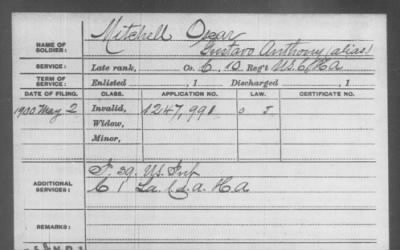 Mitchell Oscar
NAME OF SOLDIER:
Gustavo Anthony (alias)
SERVICE: Late rank, Co. C, 10 Reg't U.S.C.H.A
TERM OF SERVICE: Enlisted , 1 Discharged , 1
DATE OF FILING. CLASS. APPLICATION NO. LAW. CERTIFICATE NO.
1900 May 2 Invalid, 1247,991 J
Widow,
Minor,
ADDITIONAL SERVICES:
F. 39. U.S. Inf
C 1 La. C.d.a. H.A
REMARKS: